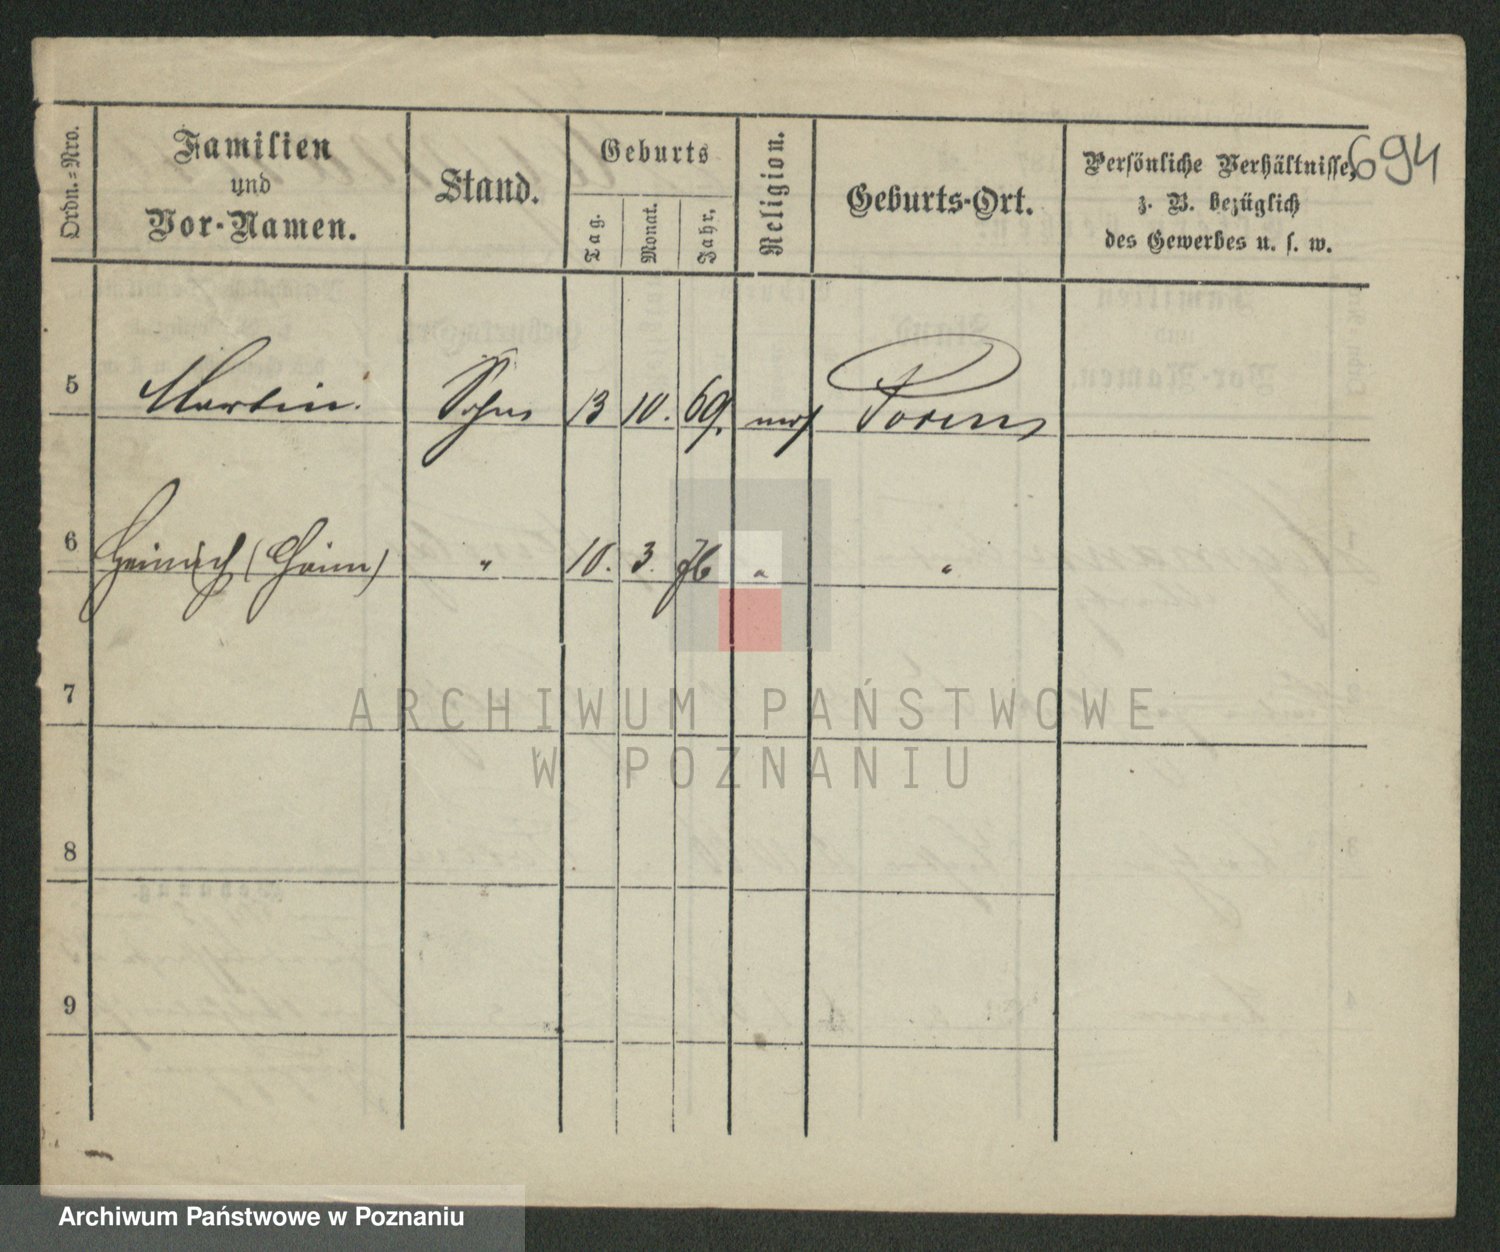 694
Ordn.=Nro.
Familien
und
Vor-Namen.
Stand.
Geburts
Tag.
Monat.
Jahr.
Religion.
Geburts-Ort.
Persönliche Verhältnisse,
z. B. bezüglich
des Gewerbes u. s. w.
5 Martin. Sohn 13 10. 69. mos Posen
6 Heinrich (Chaim) " 10. 3. 76 " "
7
8
9
ARCHIWUM PAŃSTWOWE
W POZNANIU
Archiwum Państwowe w Poznaniu